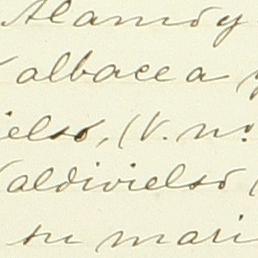 Alamo y
albacea
ielso, (V. no.
aldivielso (
su mari